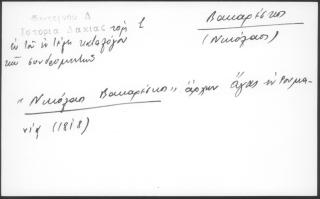 Φωτεινού Δ
Ιστορία Δακίας τόμ 1
εν τω εν τέλει καταλόγω
των συνδρομητών
Βακαρέσκος
(Νικόλαος)
"Νικόλαος Βακαρέσκος" άρχων άγας εν Ρουμα-
νία (1818)